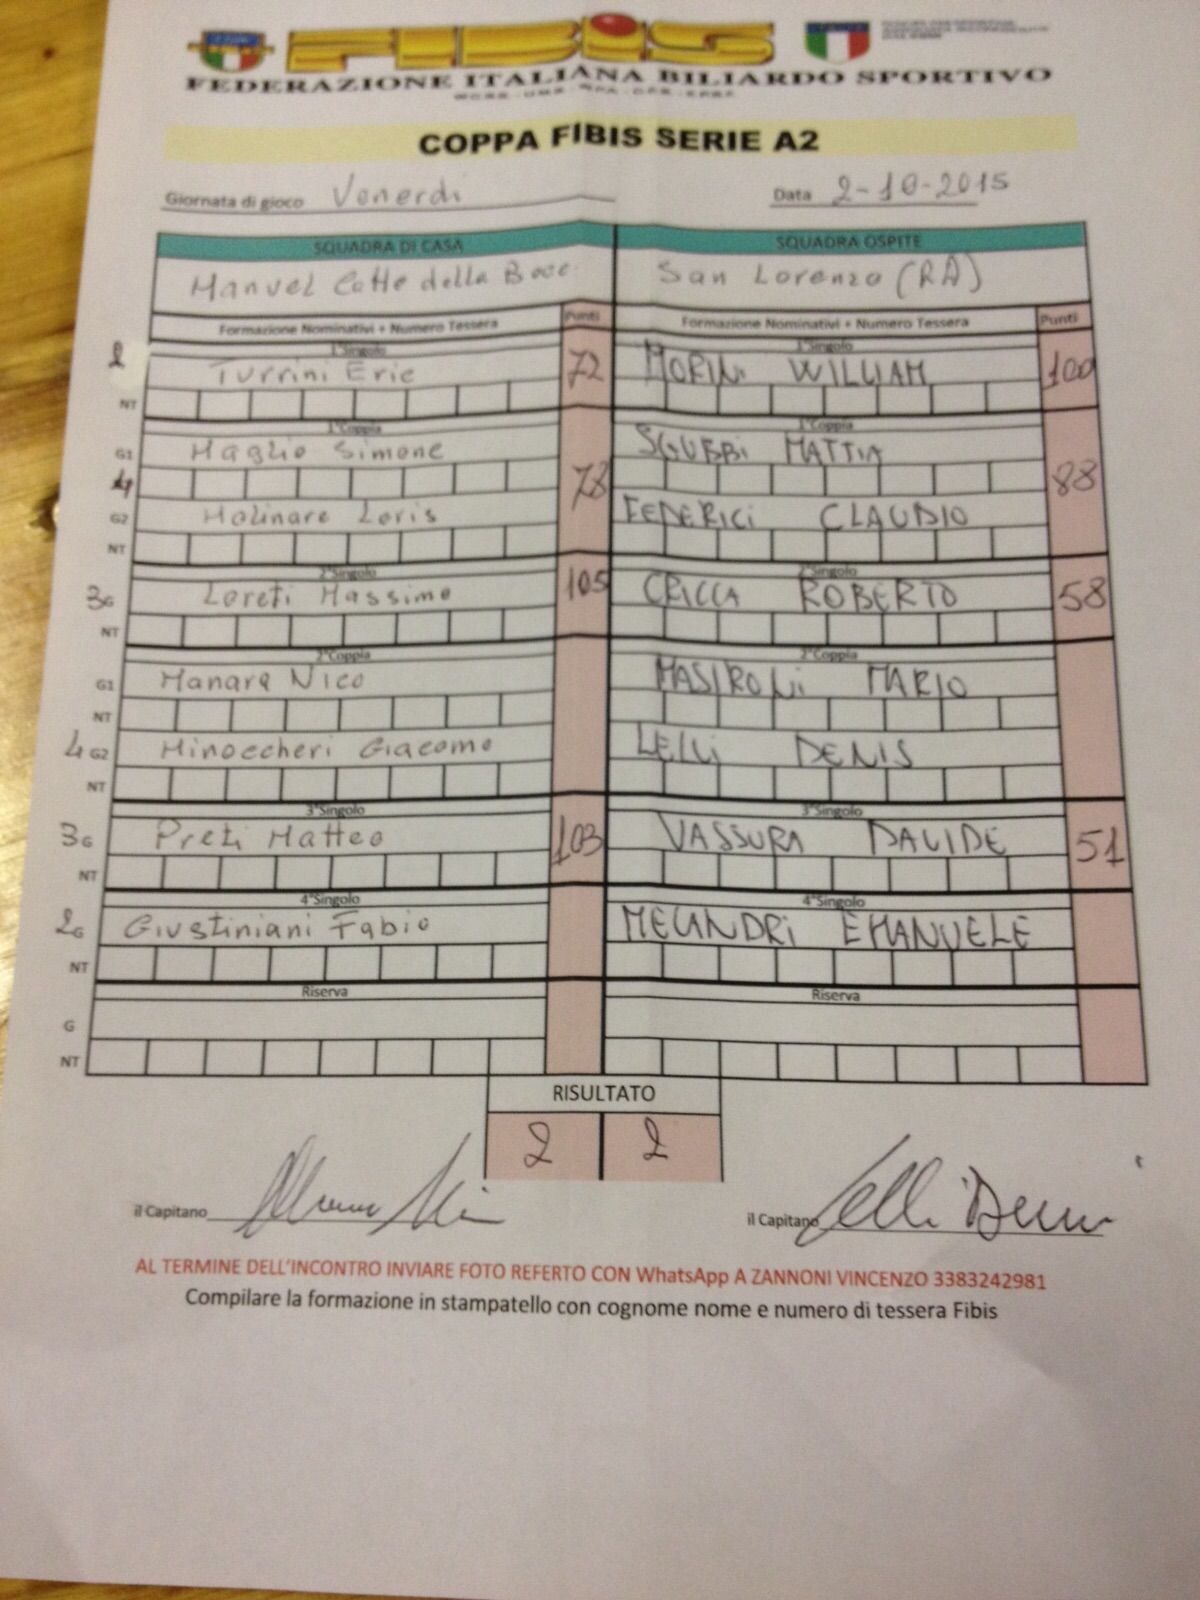 FIBIS
FEDERAZIONE ITALIANA BILIARDO SPORTIVO
COPPA FIBIS SERIE A2
Giornata di gioco Venerdì Data 2-10-2015
SQUADRA DI CASA SQUADRA OSPITE
Manuel Caffe della Bocc San Lorenzo (RA)
Formazione Nominativi + Numero Tessera Punti Formazione Nominativi + Numero Tessera Punti
1°Singolo 1°Singolo
2 Turrini Eric 72 MORINI WILLIAM 100
NT
1°Coppia 1°Coppia
G1 Maglio Simone SGUBBI MATTIA
4 78 88
G2 Molinare Loris FEDERICI CLAUDIO
NT
2°Singolo 2°Singolo
3G Loreti Massimo 105 CRICCA ROBERTO 58
NT
2°Coppia 2°Coppia
G1 Manara Nico MASIRONI MARIO
NT
4 G2 Minoccheri Giacomo LELLI DENIS
NT
3°Singolo 3°Singolo
3G Preti Matteo 103 VASSURA DAVIDE 51
NT
4°Singolo 4°Singolo
2G Giustiniani Fabio MELANDRI EMANUELE
NT
Riserva Riserva
G
NT
RISULTATO
2 2
il Capitano il Capitano Lelli Denis
AL TERMINE DELL'INCONTRO INVIARE FOTO REFERTO CON WhatsApp A ZANNONI VINCENZO 3383242981
Compilare la formazione in stampatello con cognome nome e numero di tessera Fibis